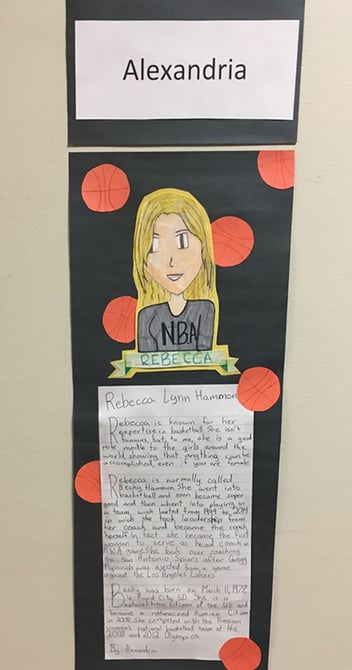 Alexandria
NBA
REBECCA
Rebecca Lynn Hammon
Rebecca is known for her
expertise in basketball. She isn't
famous, but to me, she is a good
role modle to the girls around the
world, showing that anything can be
accomplished, even if your are female.
Rebecca is normally called
Becky Hammon. She went into
basketball and soon became super
good and then whent into playing in
a team, wich lasted from 1999 to 2014
in wich she took leadership from
her coach and became the coach
herself. In fact she became the first
woman to serve as head coach in
N.B.A game. She took over coaching
the San Antonio Spurs after Gregg
Popovich was ejected from a game
against the Los Angeles Lakers
Becky was born on March 11, 1977
in Rapid City SD. She is a
natural born citizen of the US and
became a naturalized Russian citizen
in 2008. She competed with the Russian
women's national basketball team at the
2008 and 2012 Olympics.
By: Alexandria